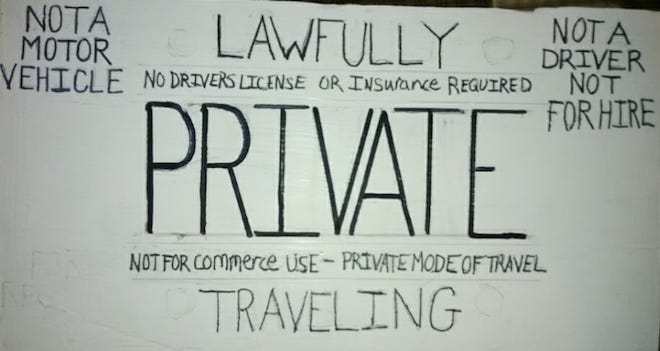 NOT A
MOTOR
VEHICLE
LAWFULLY
NOT A
DRIVER
NOT
FOR HIRE
NO DRIVERS LICENSE OR INSURANCE REQUIRED
PRIVATE
NOT FOR COMMERCE USE - PRIVATE MODE OF TRAVEL
TRAVELING